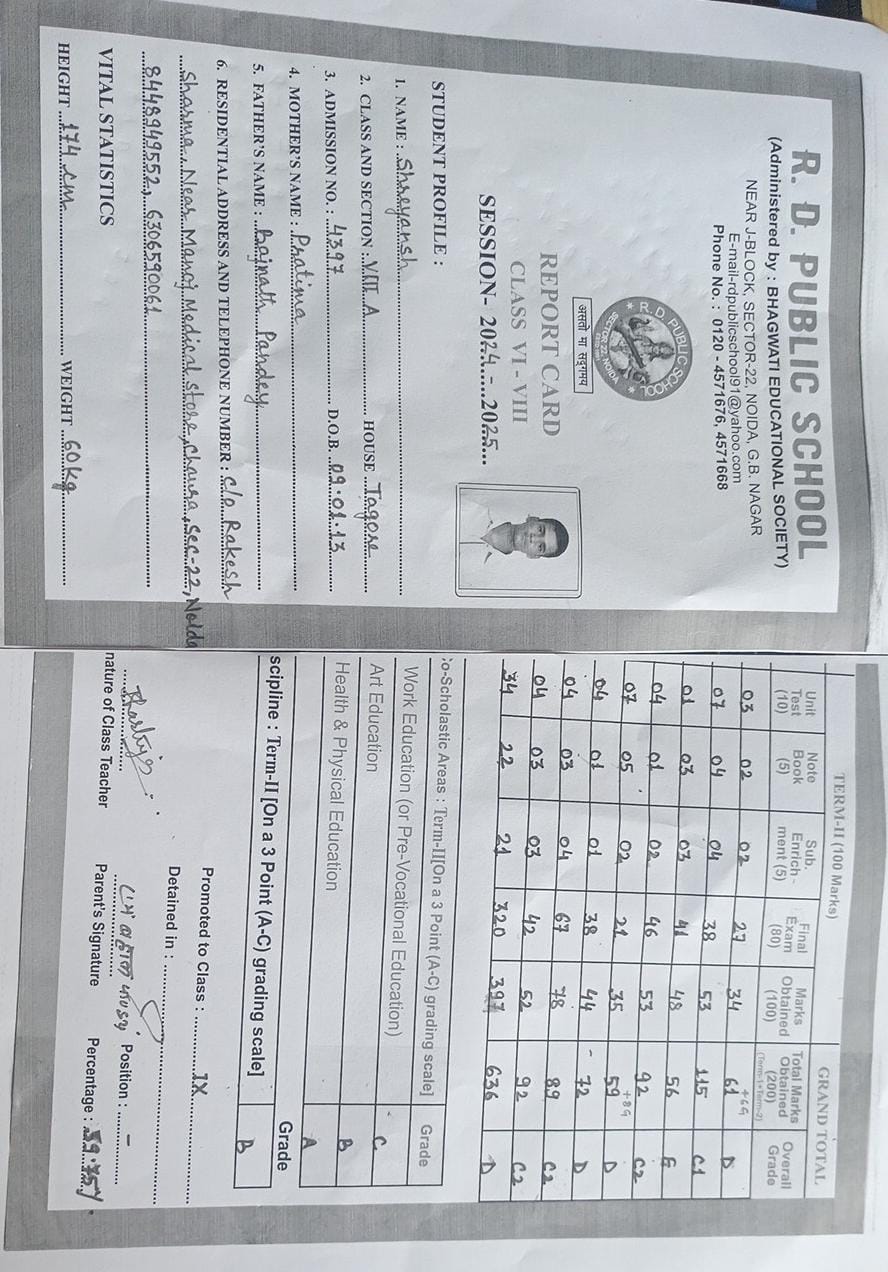 R. D. PUBLIC SCHOOL
(Administered by : BHAGWATI EDUCATIONAL SOCIETY)
NEAR J-BLOCK, SECTOR-22, NOIDA, G.B. NAGAR
E-mail-rdpublicschool91@yahoo.com
Phone No. : 0120 - 4571676, 4571668
R. D. PUBLIC SCHOOL
SECTOR 22, NOIDA
असतो मा सद्गमय
REPORT CARD
CLASS VI - VIII
SESSION- 2024 - 2025
STUDENT PROFILE :
1. NAME : Shreyansh
2. CLASS AND SECTION : VIII A HOUSE Tagore
3. ADMISSION NO. : 4397 D.O.B. 09.01.13
4. MOTHER'S NAME : Pratima
5. FATHER'S NAME : Bajnath Pandey
6. RESIDENTIAL ADDRESS AND TELEPHONE NUMBER : C/o Rakesh
Sharma, Near Manoj Medical Store, Chaura, Sec-22, Noida
8448949552, 6306590061
VITAL STATISTICS
HEIGHT 174 cm WEIGHT 60kg
TERM-II (100 Marks) GRAND TOTAL
Unit Test (10) Note Book (5) Sub. Enrich- ment (5) Final Exam (80) Marks Obtained (100) Total Marks Obtained (200) (Term-1+Term-2) Overall Grade
03 02 02 27 34 61 +6G D
07 04 04 38 53 115 C1
01 03 03 41 48 56 E
04 01 02 46 53 92 C2
07 05 02 21 35 59 +8G D
04 01 01 38 44 - 72 D
04 03 04 67 78 89 C2
04 03 03 42 52 92 C2
34 22 21 320 397 636 D
o-Scholastic Areas : Term-II[On a 3 Point (A-C) grading scale] Grade
Work Education (or Pre-Vocational Education) C
Art Education B
Health & Physical Education A
Grade
scipline : Term-II [On a 3 Point (A-C) grading scale] B
Promoted to Class : IX
Detained in :
nature of Class Teacher Parent's Signature Position : - Percentage : 39.75%